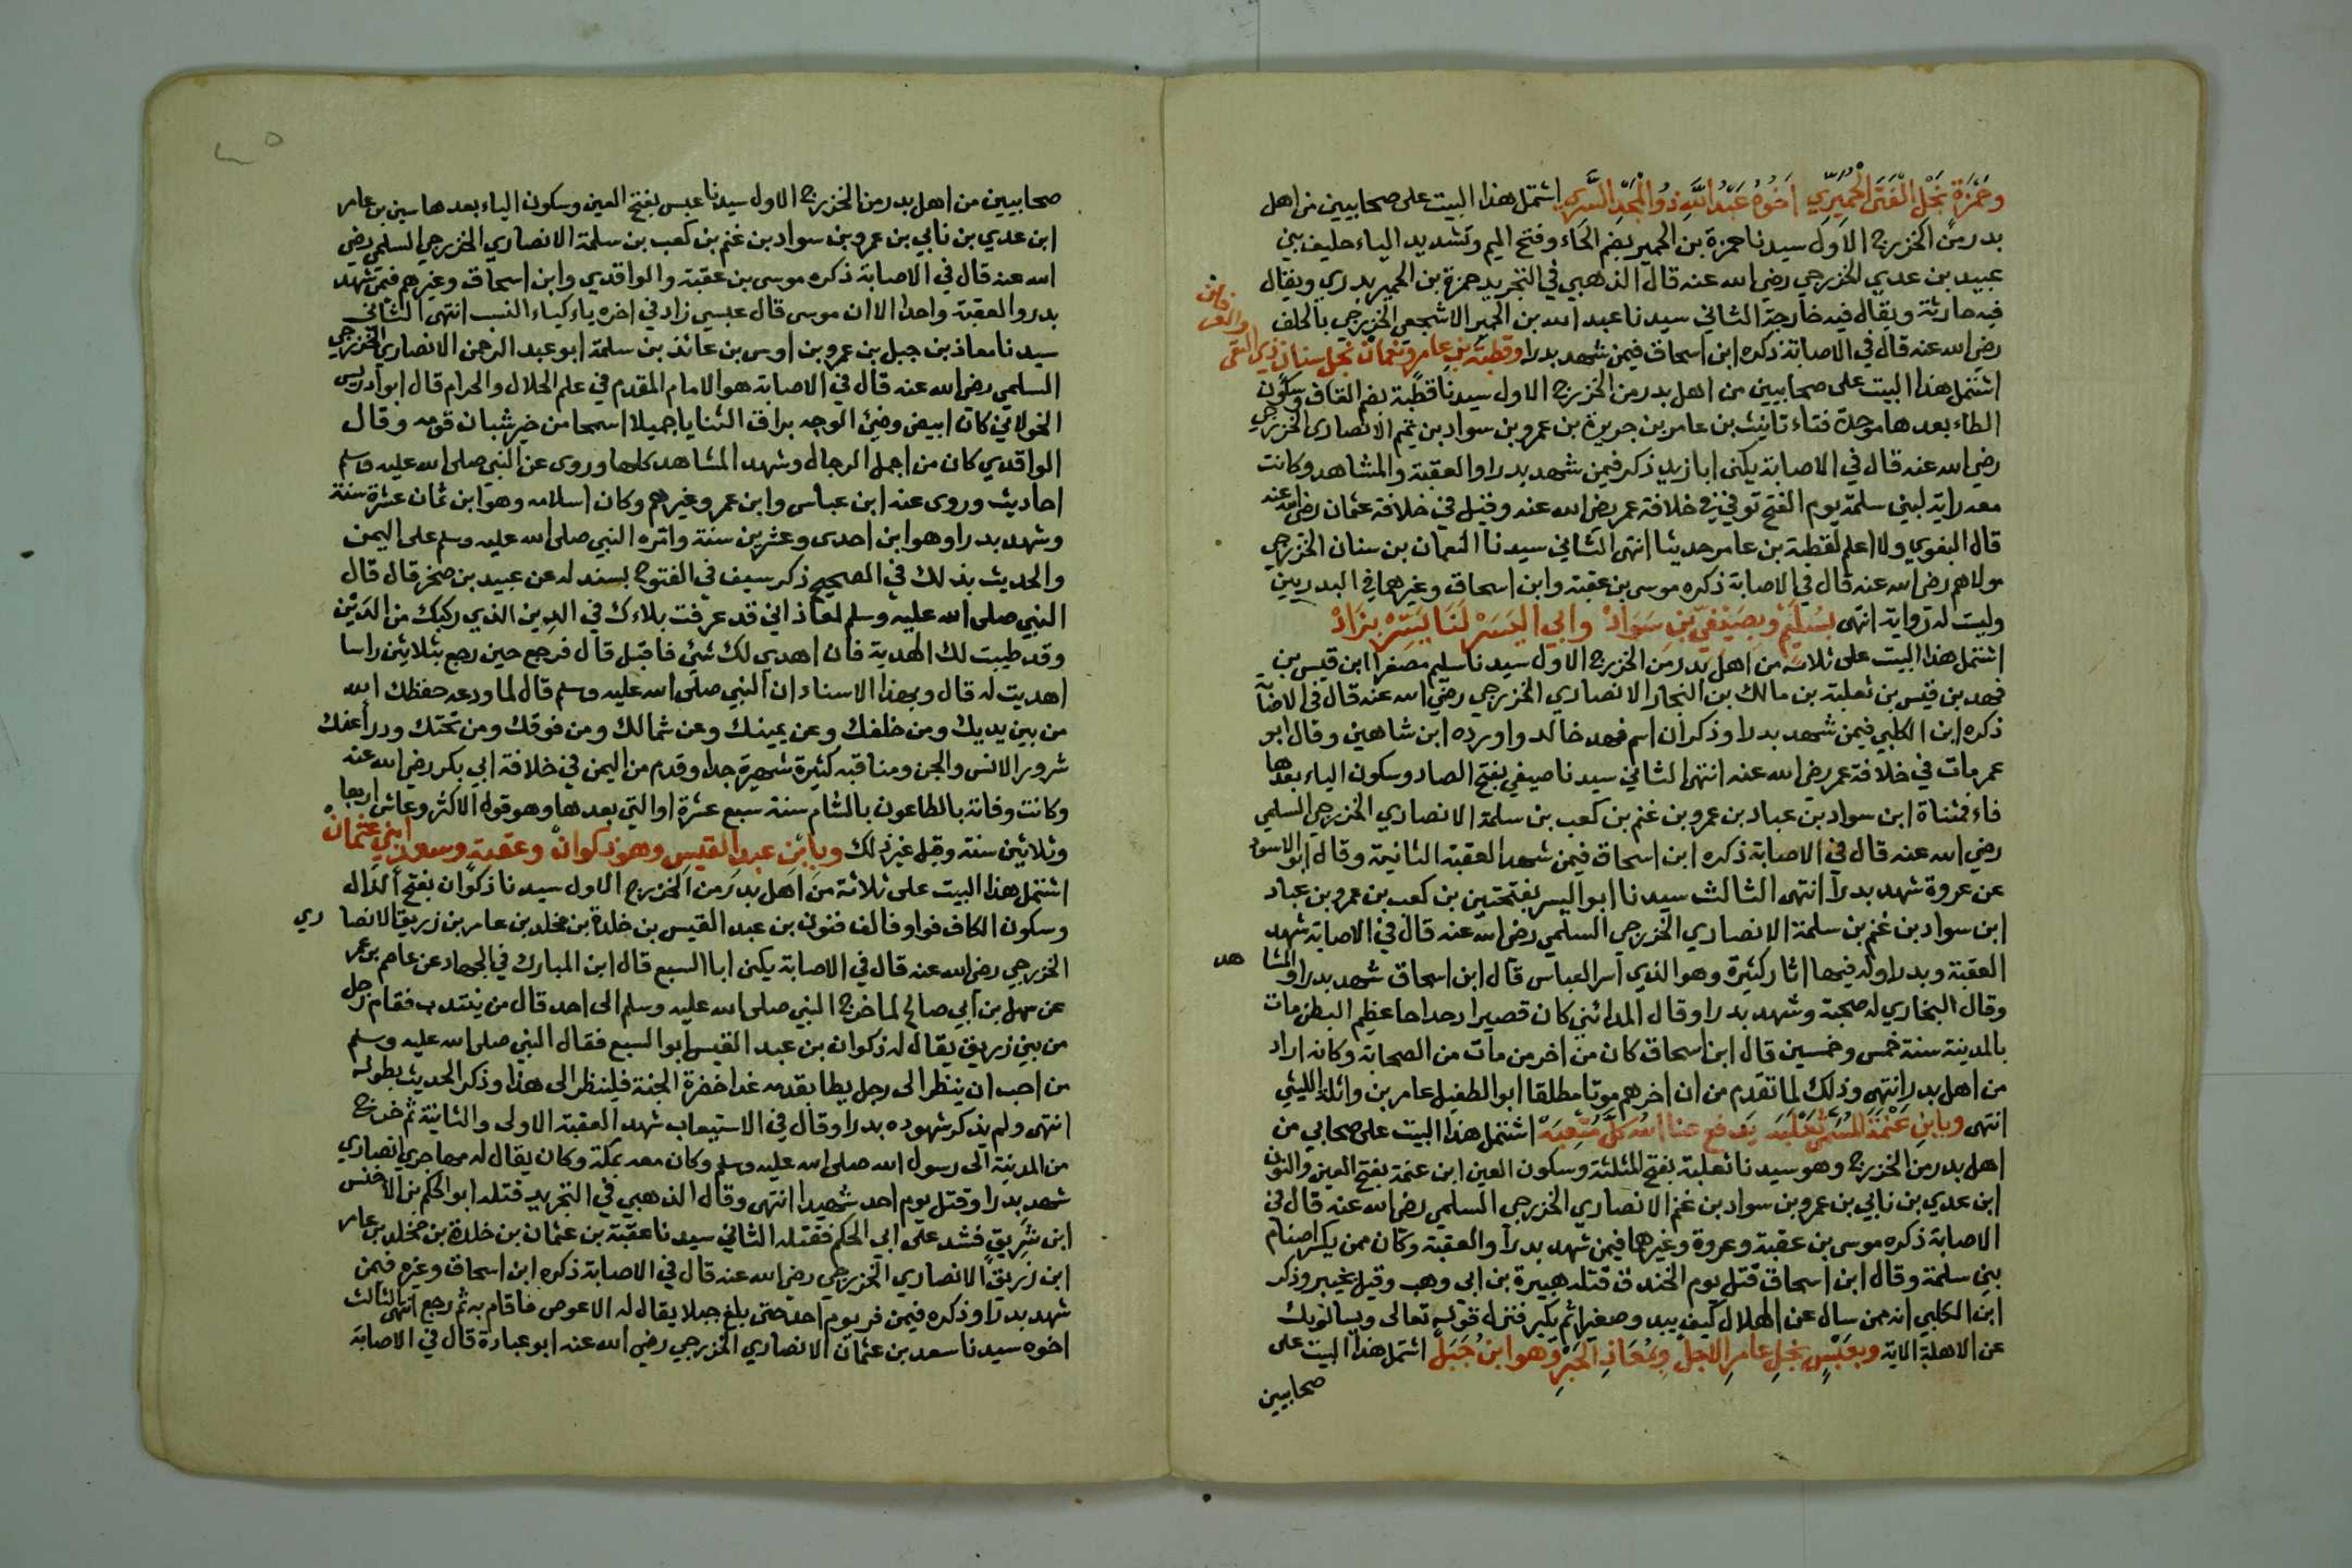 وحمزة نجل الفتى الحُمَيِّرِي اخوه عبد الله ذو المجد السري اشتمل هذا البيت على صحابيين من اهل
بدر من الخزرج الاول سيدنا حمزة بن الحمير بضم الحاء وفتح الميم وتشديد الياء حليف بني
عبيد بن عدي الخزرجي رضي الله عنه قال الذهبي في التجريد حمزة بن الحمير بدري ويقال
فيه حارثة ويقال فيه خارجة الثاني سيدنا عبد الله بن الحمير الاشجعي الخزرجي بالحلف
رضي الله عنه قال في الاصابة ذكره ابن اسحاق فيمن شهد بدرا وقطبة بن عامر ونعمان نجل سنان ذي التقى
اشتمل هذا البيت على صحابيين من اهل بدر من الخزرج الاول سيدنا قطبة بضم القاف وسكون
الطاء بعدها موحدة فتاء تانيث بن عامر بن جريرة بن عمرو بن سواد بن غنم الانصاري الخزرجي
رضي الله عنه قال في الاصابة يكنى ابا زيد ذكر فيمن شهد بدرا والعقبة والمشاهد وكانت
معه راية لبني سلمة يوم الفتح توفي في خلافة عمر رضي الله عنه وقيل في خلافة عثمان رضي الله عنه
قال البغوي ولا اعلم لقطبة بن عامر حديثا انتهى الثاني سيدنا النعمان بن سنان الخزرجي
مولاهم رضي الله عنه قال في الاصابة ذكره موسى بن عقبة وابن اسحاق وغيرهما في البدريين
وليت له رواية انتهى بسليم وبصيفي بن سواد وابي اليسر لنا يسر بزاد
اشتمل هذا البيت على ثلاثة من اهل بدر من الخزرج الاول سيدنا سليم مصغرا ابن قيس بن
فهد بن قيس بن ثعلبة بن مالك بن النجار الانصاري الخزرجي رضي الله عنه قال في الاصابة
ذكره ابن الكلبي فيمن شهد بدرا وذكر ان اسم فهد خالد واورده ابن شاهين وقال ابو
عمر مات في خلافة عمر رضي الله عنه انتهى الثاني سيدنا صيفي بفتح الصاد وسكون الياء بعدها
فاء فمثناة ابن سواد بن عباد بن عمرو بن غنم بن كعب بن سلمة الانصاري الخزرجي السلمي
رضي الله عنه قال في الاصابة ذكره ابن اسحاق فيمن شهد العقبة الثانية وقال ابو الاسود
عن عروة شهد بدرا انتهى الثالث سيدنا ابو اليسر بفتحتين بن كعب بن عمرو بن عباد
ابن سواد بن غنم بن سلمة الانصاري الخزرجي السلمي رضي الله عنه قال في الاصابة شهد
العقبة وبدرا وله فيهما اثار كثيرة وهو الذي اسر العباس قال ابن اسحاق شهد بدرا والمشاهد
وقال البخاري له صحبة وشهد بدرا وقال المدائني كان قصيرا دحداحا عظيم البطن مات
بالمدينة سنة خمس وخمسين قال ابن اسحاق كان من اخر من مات من الصحابة وكانه اراد
من اهل بدر انتهى وذلك لما تقدم من ان اخرهم موتا مطلقا ابو الطفيل عامر بن واثلة الليثي
انتهى وبابن عنمة المسمى ثعلبه يدفع عنا الله كل متعبه اشتمل هذا البيت على صحابي من
اهل بدر من الخزرج وهو سيدنا ثعلبة بفتح المثلثة وسكون العين ابن عنمة بفتح العين والنون
ابن عدي بن نابي بن عمرو بن سواد بن غنم الانصاري الخزرجي السلمي رضي الله عنه قال في
الاصابة ذكره موسى بن عقبة وعروة وغيرهما فيمن شهد بدرا والعقبة وكان ممن يكسر اصنام
بني سلمة وقال ابن اسحاق قتل يوم الخندق قتله هبيرة بن ابي وهب وقيل بخيبر وذكر
ابن الكلبي انه ممن سال عن الهلال كيف يبدو صغيرا ثم يكبر فنزل قوله تعالى ويسالونك
عن الاهلة الاية وبعبس نجل عامر الاجل ومعاذ الحبر وهو ابن جبل اشتمل هذا البيت على
صحابيين
صحابيين من اهل بدر من الخزرج الاول سيدنا عبس بفتح العين وسكون الياء بعدها سين بن عامر
ابن عدي بن نابي بن عمرو بن سواد بن غنم بن كعب بن سلمة الانصاري الخزرجي السلمي رضي
الله عنه قال في الاصابة ذكره موسى بن عقبة والواقدي وابن اسحاق وغيرهم فيمن شهد
بدرا والعقبة واحدا الا ان موسى قال عبسي زاد في اخره ياء كياء النسب انتهى الثاني
سيدنا معاذ بن جبل بن عمرو بن اوس بن عائذ بن سلمة ابو عبد الرحمن الانصاري الخزرجي
السلمي رضي الله عنه قال في الاصابة هو الامام المقدم في علم الحلال والحرام قال ابو ادريس
الخولاني كان ابيض وضيئ الوجه براق الثنايا جميلا اسمحا من خير شبان قومه وقال
الواقدي كان من اجمل الرجال وشهد المشاهد كلها وروى عن النبي صلى الله عليه وسلم
احاديث وروى عنه ابن عباس وابن عمر وغيرهم وكان اسلامه وهو ابن ثمان عشرة سنة
وشهد بدرا وهو ابن احدى وعشرين سنة وامره النبي صلى الله عليه وسلم على اليمن
والحديث بذلك في الصحيح ذكر سيف في الفتوح بسند له عن عبيد بن صخر قال قال
النبي صلى الله عليه وسلم لمعاذ اني قد عرفت بلاءك في الدين الذي ركبك من الدين
وقد طيبت لك الهدية فان اهدي لك شيئ فاقبل قال فرجع حين رجع بثلاثين راسا
اهديت له قال وبهذا الاسناد ان النبي صلى الله عليه وسلم قال لما ودعه حفظك الله
من بين يديك ومن خلفك وعن يمينك وعن شمالك ومن فوقك ومن تحتك ودرأ عنك
شرور الانس والجن ومناقبه كثيرة شهيرة جدا وقدم من اليمن في خلافة ابي بكر رضي الله عنه
وكانت وفاته بالطاعون بالشام سنة سبع عشرة او التي بعدها وهو قول الاكثر وعاش اربعا
وثلاثين سنة وقيل غير ذلك وبابن عبد القيس وهو ذكوان وعقبة وسعد ابني عثمان
اشتمل هذا البيت على ثلاثة من اهل بدر من الخزرج الاول سيدنا ذكوان بفتح الذال
وسكون الكاف فواو فالف فنون بن عبد القيس بن خلدة بن مخلد بن عامر بن زريق الانصاري
الخزرجي رضي الله عنه قال في الاصابة يكنى ابا السبع قال ابن المبارك في الجهاد عن عاصم بن عمر
عن سهل بن ابي صالح لما خرج النبي صلى الله عليه وسلم الى احد قال من ينتدب فقام رجل
من بني زريق يقال له ذكوان بن عبد القيس ابو السبع فقال النبي صلى الله عليه وسلم
من احب ان ينظر الى رجل يطا بقدمه غدا خضرة الجنة فلينظر الى هذا وذكر الحديث بطوله
انتهى ولم يذكر شهوده بدرا وقال في الاستيعاب شهد العقبة الاولى والثانية ثم خرج
من المدينة الى رسول الله صلى الله عليه وسلم وكان معه بمكة وكان يقال له مهاجري انصاري
شهد بدرا وقتل يوم احد شهيدا انتهى وقال الذهبي في التجريد قتله ابو الحكم بن الاخنس
ابن شريق فشد على ابي الحكم فقتله الثاني سيدنا عقبة بن عثمان بن خلدة بن مخلد بن عامر
ابن زريق الانصاري الخزرجي رضي الله عنه قال في الاصابة ذكره ابن اسحاق وغيره فيمن
شهد بدرا وذكره فيمن فر يوم احد حتى بلغ جبلا يقال له الاعوص فاقام به ثم رجع انتهى الثالث
اخوه سيدنا سعد بن عثمان الانصاري الخزرجي رضي الله عنه ابو عبادة قال في الاصابة